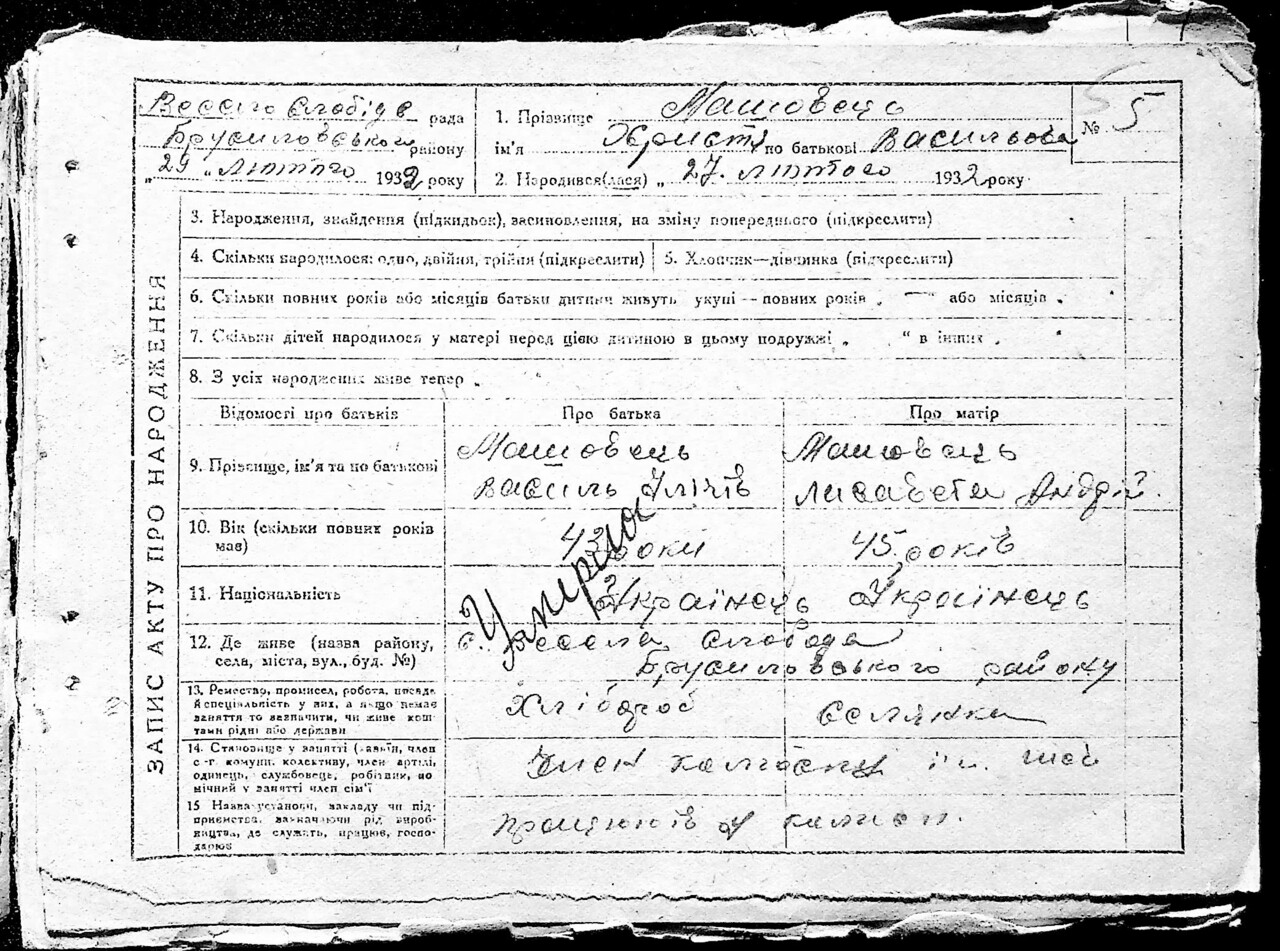 Весело Слобідс рада
Брусиловського району
„ 29 „ Лютого 1932 року
1. Прізвище Машовець
ім'я Христя по батькові Васильова
2. Народився(лася) „ 27. лютого 1932 року
№ 5
ЗАПИС АКТУ ПРО НАРОДЖЕННЯ
3. Народження, знайдення (підкидьок), засиновлення, на зміну попереднього (підкреслити)
4. Скільки народилося: одно, двійня, трійня (підкреслити) 5. Хлопчик—дівчинка (підкреслити)
6. Скільки повних років або місяців батьки дитини живуть укупі — повних років „ — " або місяців „ "
7. Скільки дітей народилося у матері перед цією дитиною в цьому подружжі „ “ в інших „ “
8. З усіх народжених живе тепер „
Відомості про батьків Про батька Про матір
9. Прізвище, ім'я та по батькові
Машовець
Василь Ілічів
Машовець
Лисавета Андрій.
10. Вік (скільки повних років
має)
43 роки
45 років
11. Національність
Українець
Українець
Умерло
12. Де живе (назва району,
села, міста, вул., буд. №)
с. Весела Слобода
Брусиловського району
13. Ремество, промисел, робота, посада
й спеціальність у них, а якщо немає
заняття то зазначити, чи живе кош-
тами рідні або держави
Хлібороб
Селянка
14. Становище у занятті (хазяїн, член
с.-г. комуни, колективу, член артілі,
одинець, службовець, робітник, по
мічний у занятті член сім'ї
Член колгоспу ім.
15 Назва установи, закладу чи під-
приємства, зазначаючи рід вироб-
ництва, де служать, працює, госпо-
дарює
працюють у